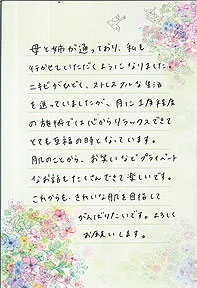 母と姉が通っており、私も
行かせていただくようになりました
ニキビがひどく、ストレスフルな生活
を送っていましたが、月に1度程度
の施術では心からリラックスできて
とても至福の時となっています。
肌のことから、お笑いなどプライベート
なお話もたくさんできて楽しいです。
これからも、きれいな肌を目指して
がんばりたいです。よろしく
お願いします。